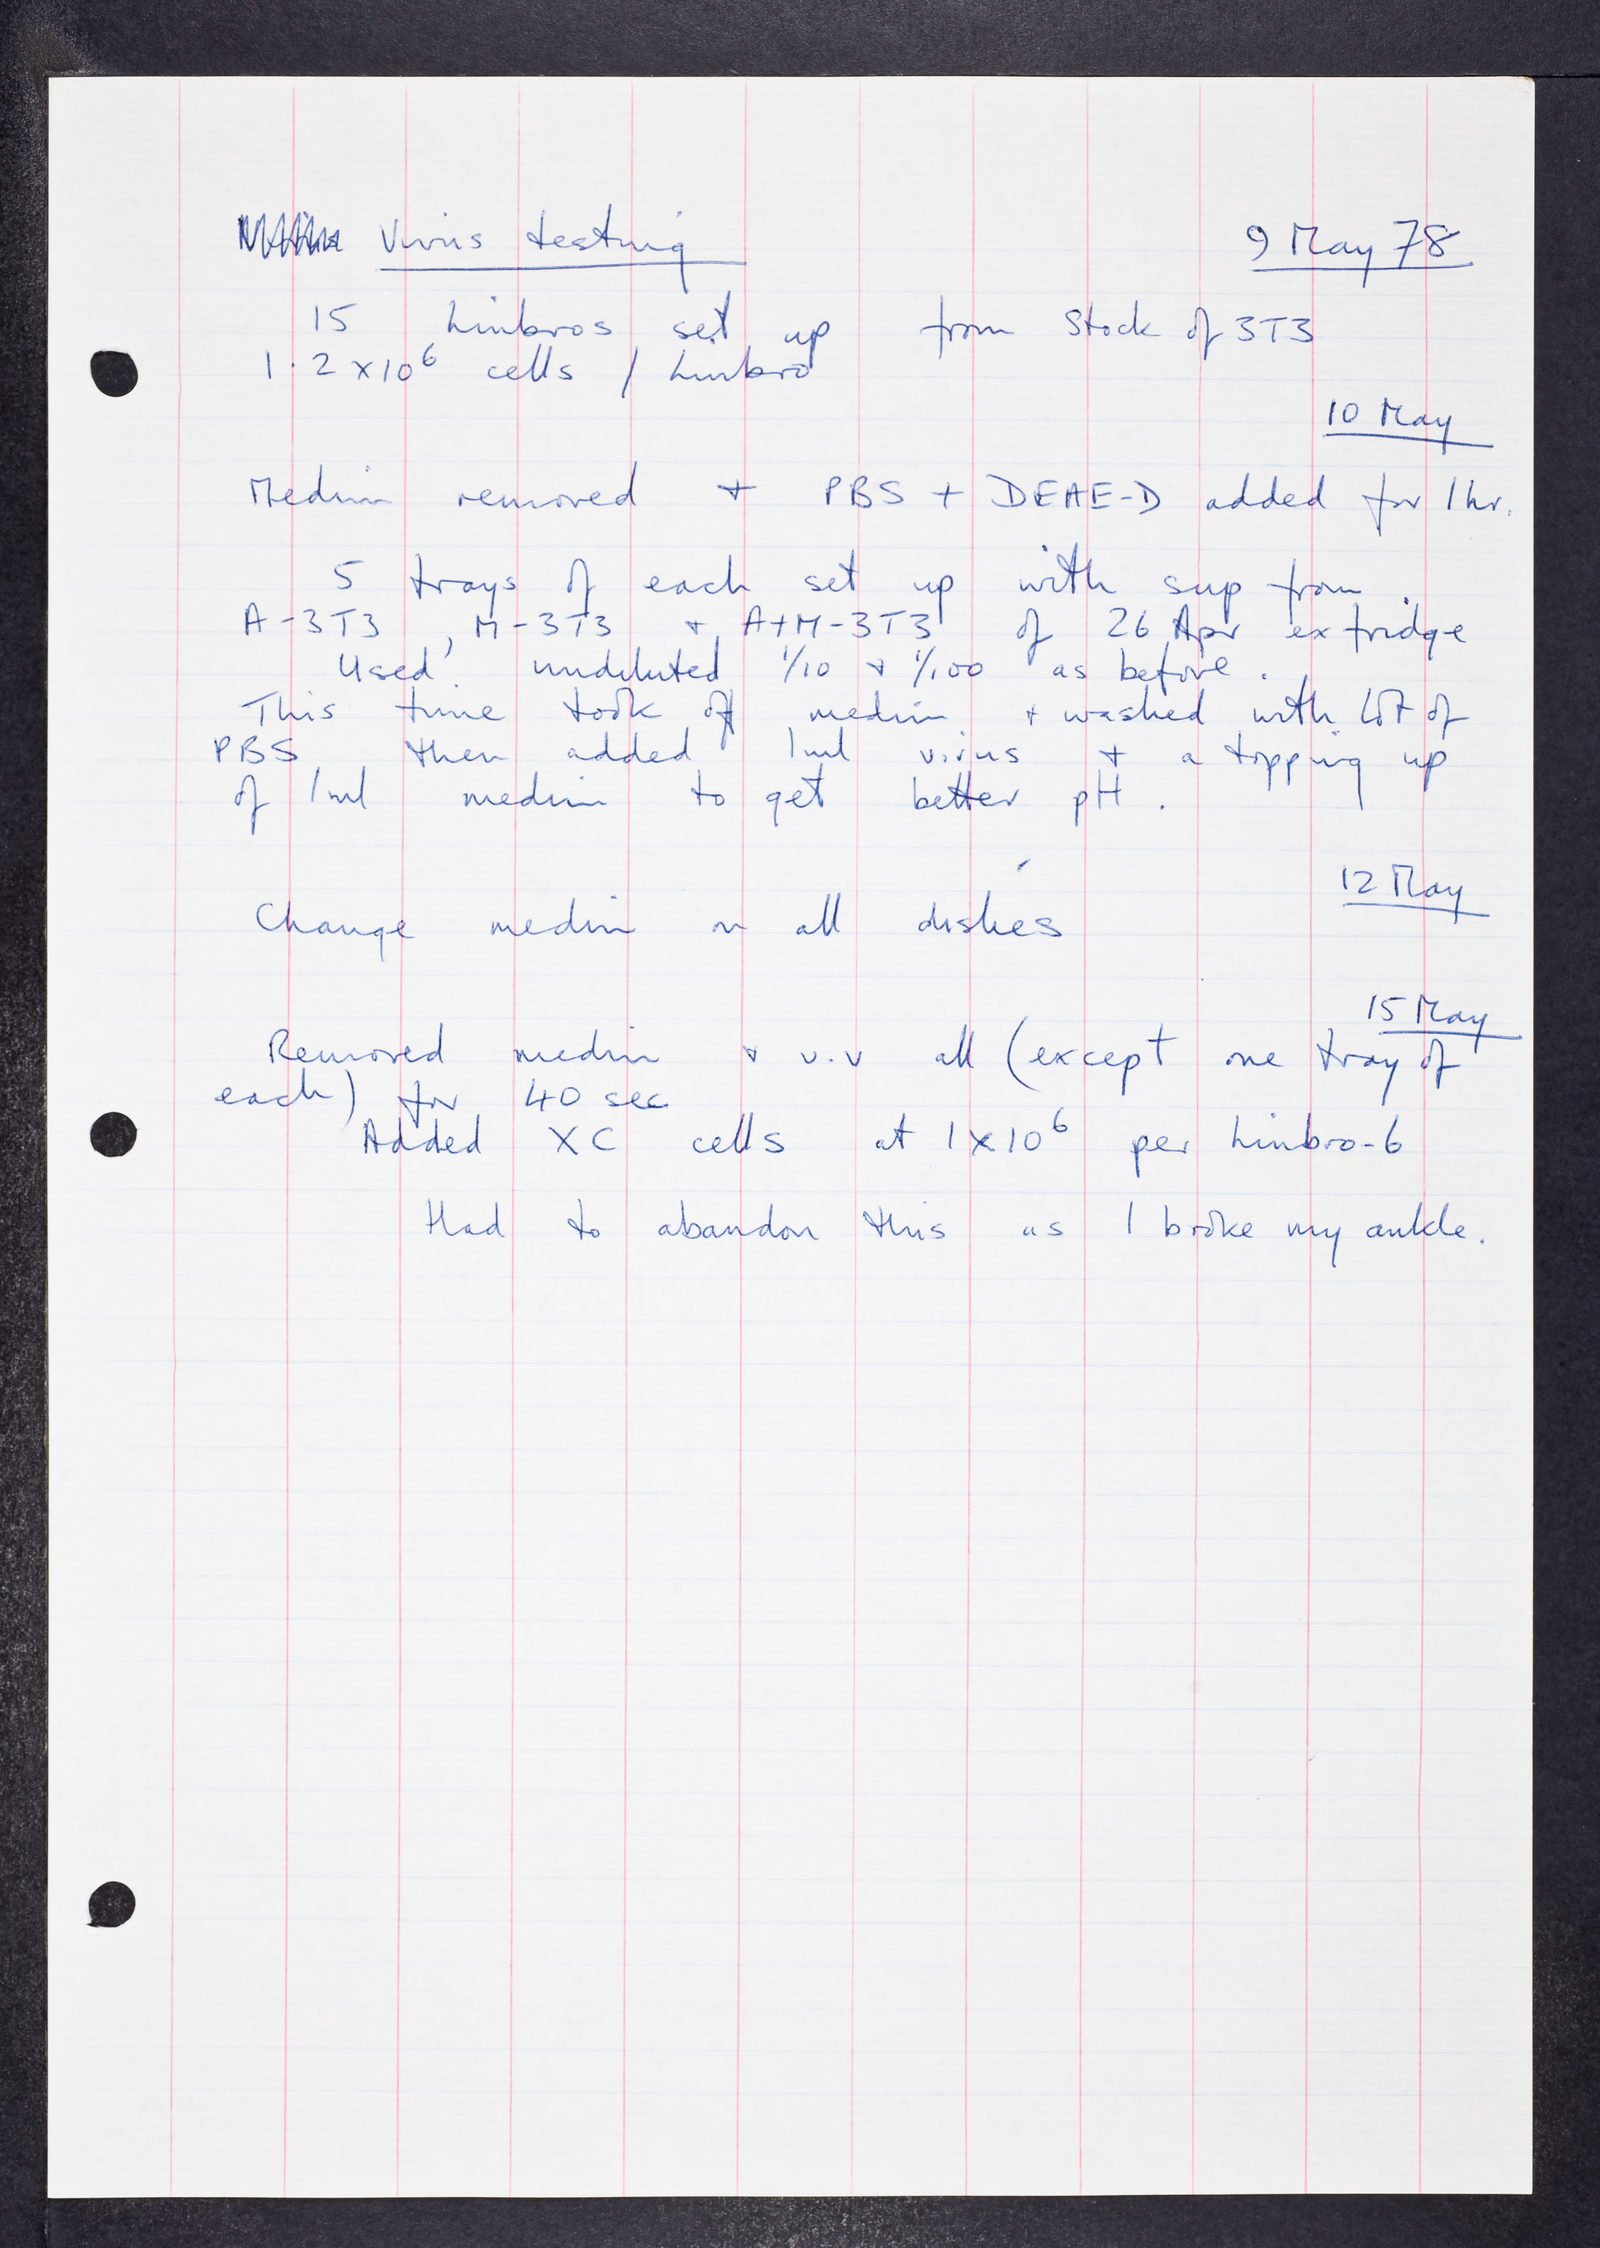 Virus testing 9 May 78
15 Linbros set up from stock of 3T3
1.2 x 10⁶ cells / Linbro
10 May
Medium removed + PBS + DEAE-D added for 1 hr.
5 trays of each set up with sup from
A-3T3, M-3T3 + A+M-3T3 of 26 Apr ex fridge
Used undiluted 1/10 + 1/100 as before.
This time took off medium + washed with lot of
PBS then added 1ml virus + a topping up
of 1ml medium to get better pH.
12 May
Change medium on all dishes
15 May
Removed medium + u.v all (except one tray of
each) for 40 sec
Added XC cells at 1x10⁶ per Linbro-6
Had to abandon this as I broke my ankle.